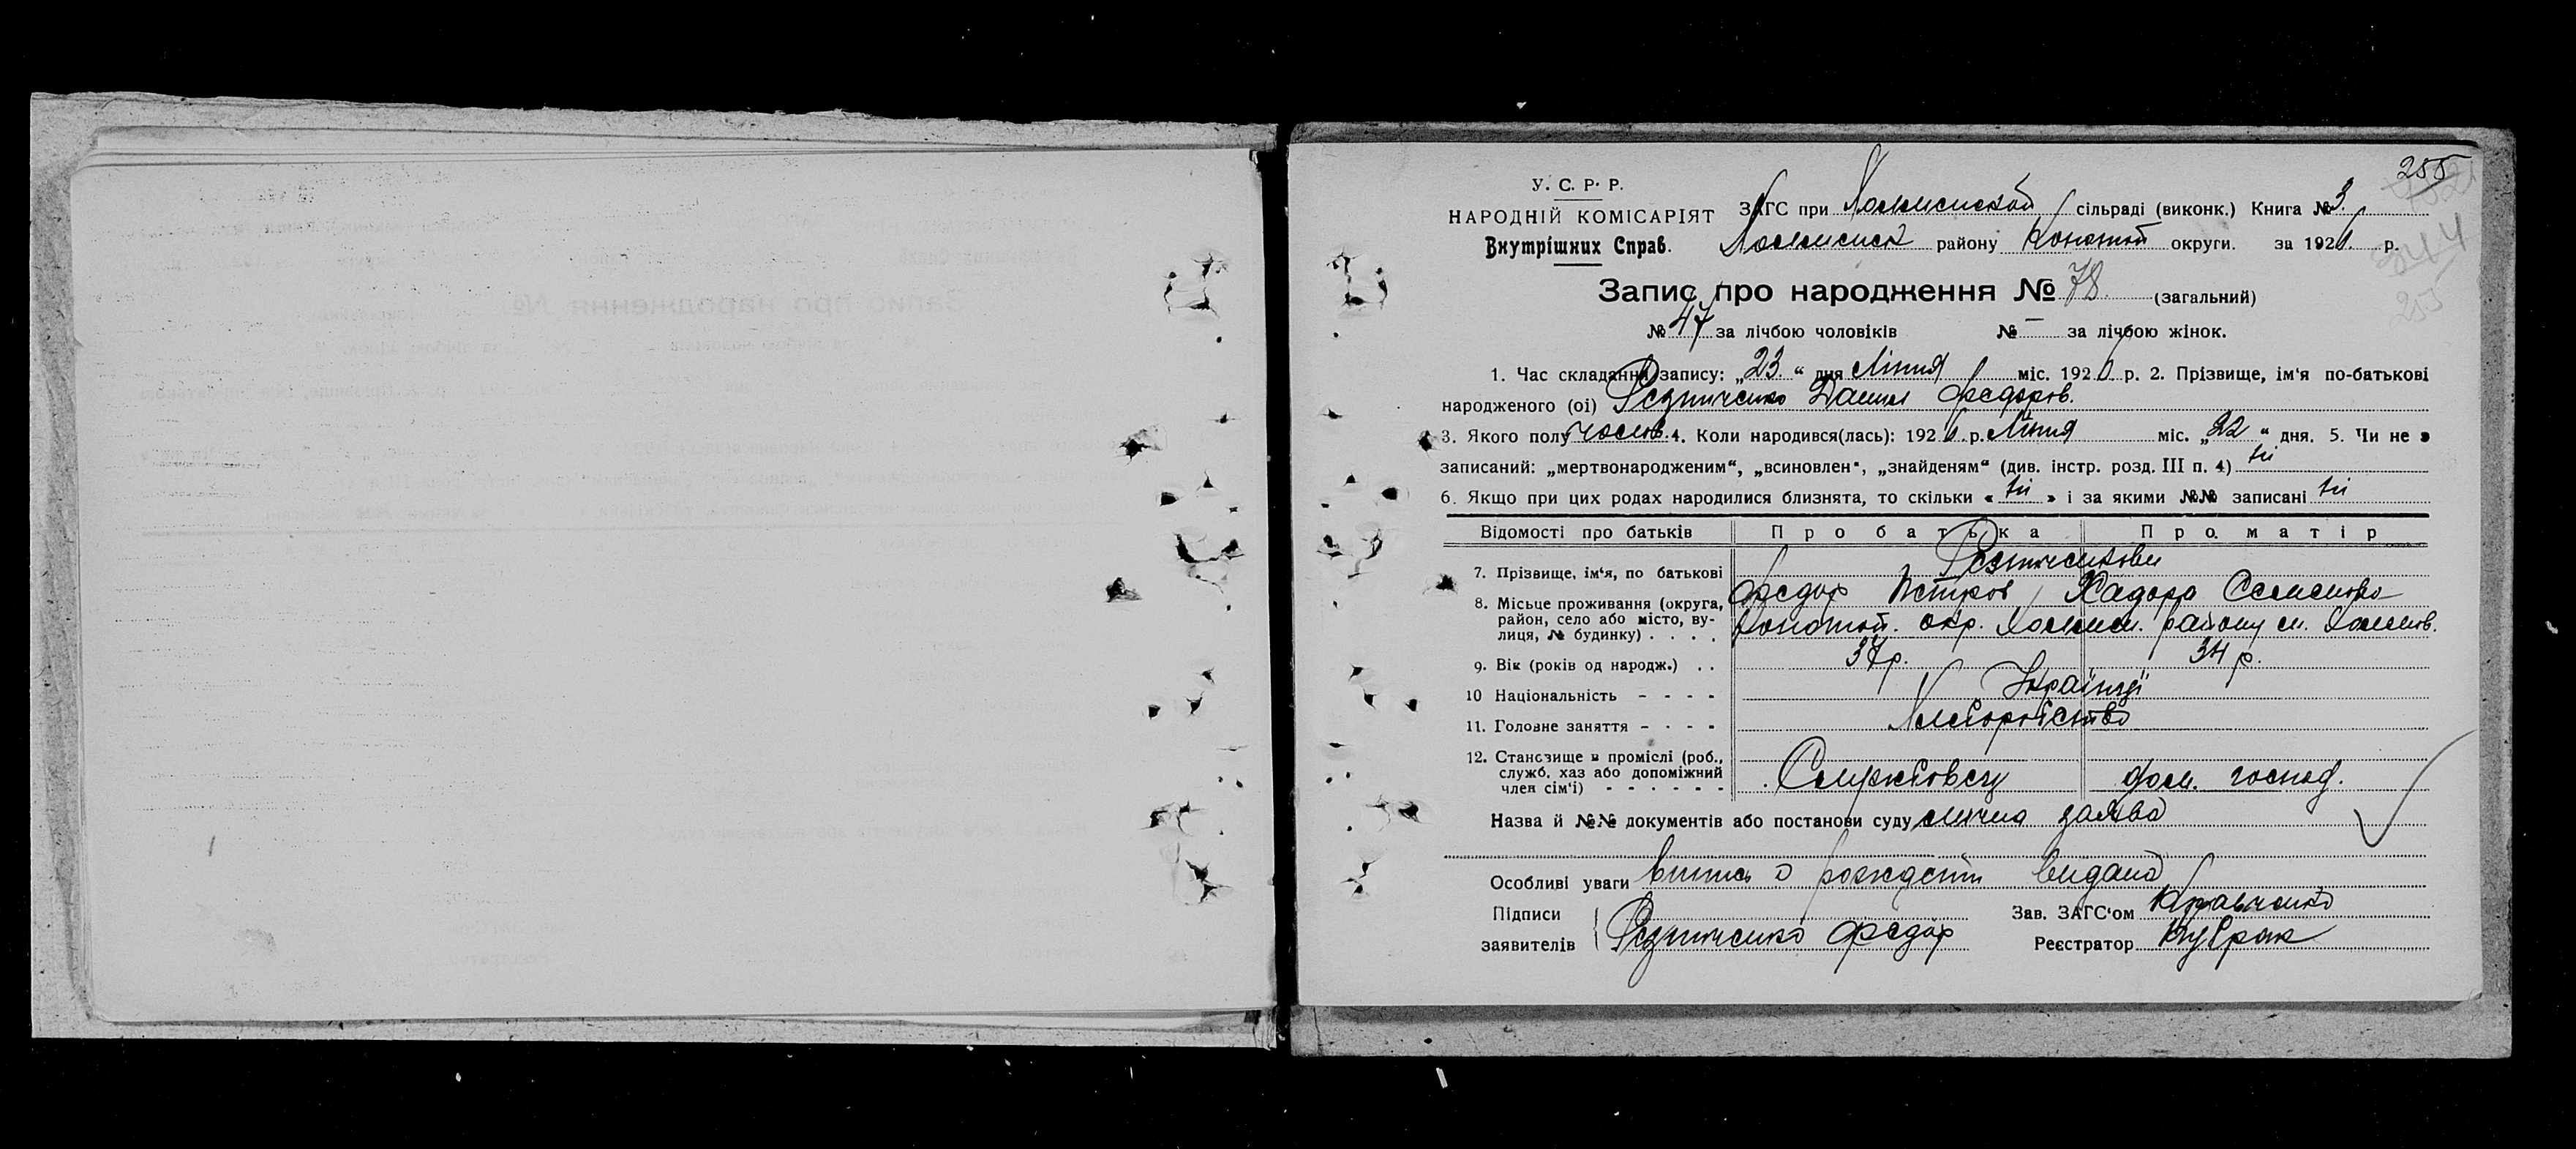 255
У. С. Р. Р.
НАРОДНІЙ КОМІСАРІЯТ
Внутрішних Справ.
ЗАГС при сільраді (виконк.) Книга № 3.
району Конотоп округи. за 192 р.
244
253
Запис про народження № 78 (загальний)
№ 47 за лічбою чоловіків № — за лічбою жінок.
1. Час складання запису: „23.“ дня Липня міс. 192 р. 2. Прізвище, ім'я по-батькові
народженого (ої) Резниченко Данил Федоров.
3. Якого полу чолов. 4. Коли народився(лась): 192 р. Липня міс. „22“ дня. 5. Чи не є
записаний: „мертвонародженим“, „всиновлен“, „знайденям“ (див. інстр. розд. III п. 4) ні
6. Якщо при цих родах народилися близнята, то скільки « ні » і за якими №№ записані ні
Відомості про батьків Про батька Про. матір
7. Прізвище, ім'я, по батькові Резниченкови
Федор Петров Хадора Семенова
8. Місьце проживання (округа, район, село або місто, вулиця, № будинку) . . . . Конотоп. окр. району м.
9. Вік (років од народж.) . . 37 р. 34 р.
10 Національність - - - - Українці
11. Головне заняття - - - - Хліборобство
12. Становище в промислі (роб., служб. хаз або допоміжний член сім'ї) - - - - - - дом. господ.
Назва й №№ документів або постанови суду лична заява
Особливі уваги випись о рождении видана
Підписи заявителів Резниченко Федор
Зав. ЗАГС'ом Кравченко
Реєстратор Кубрак